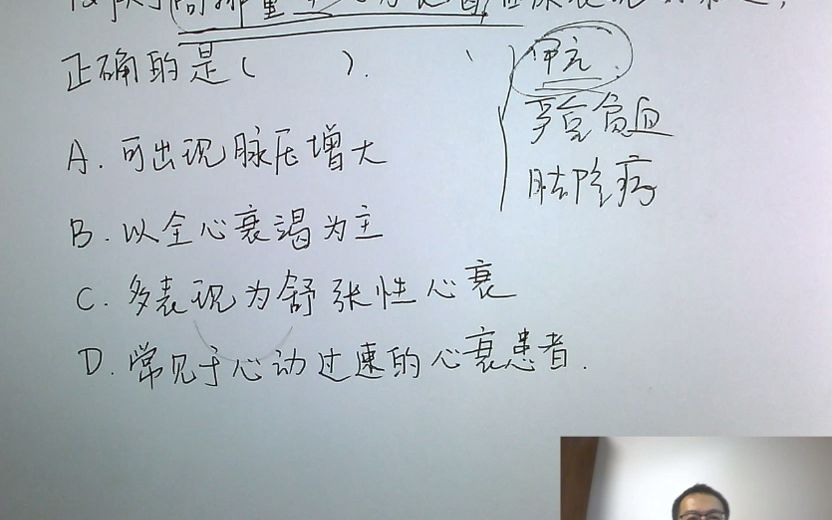 高排量
正确的是( ).
A. 可出现脉压增大
B. 以全心衰竭为主
C. 多表现为舒张性心衰
D. 常见于心动过速的心衰患者.
甲亢
严重贫血
脚气病